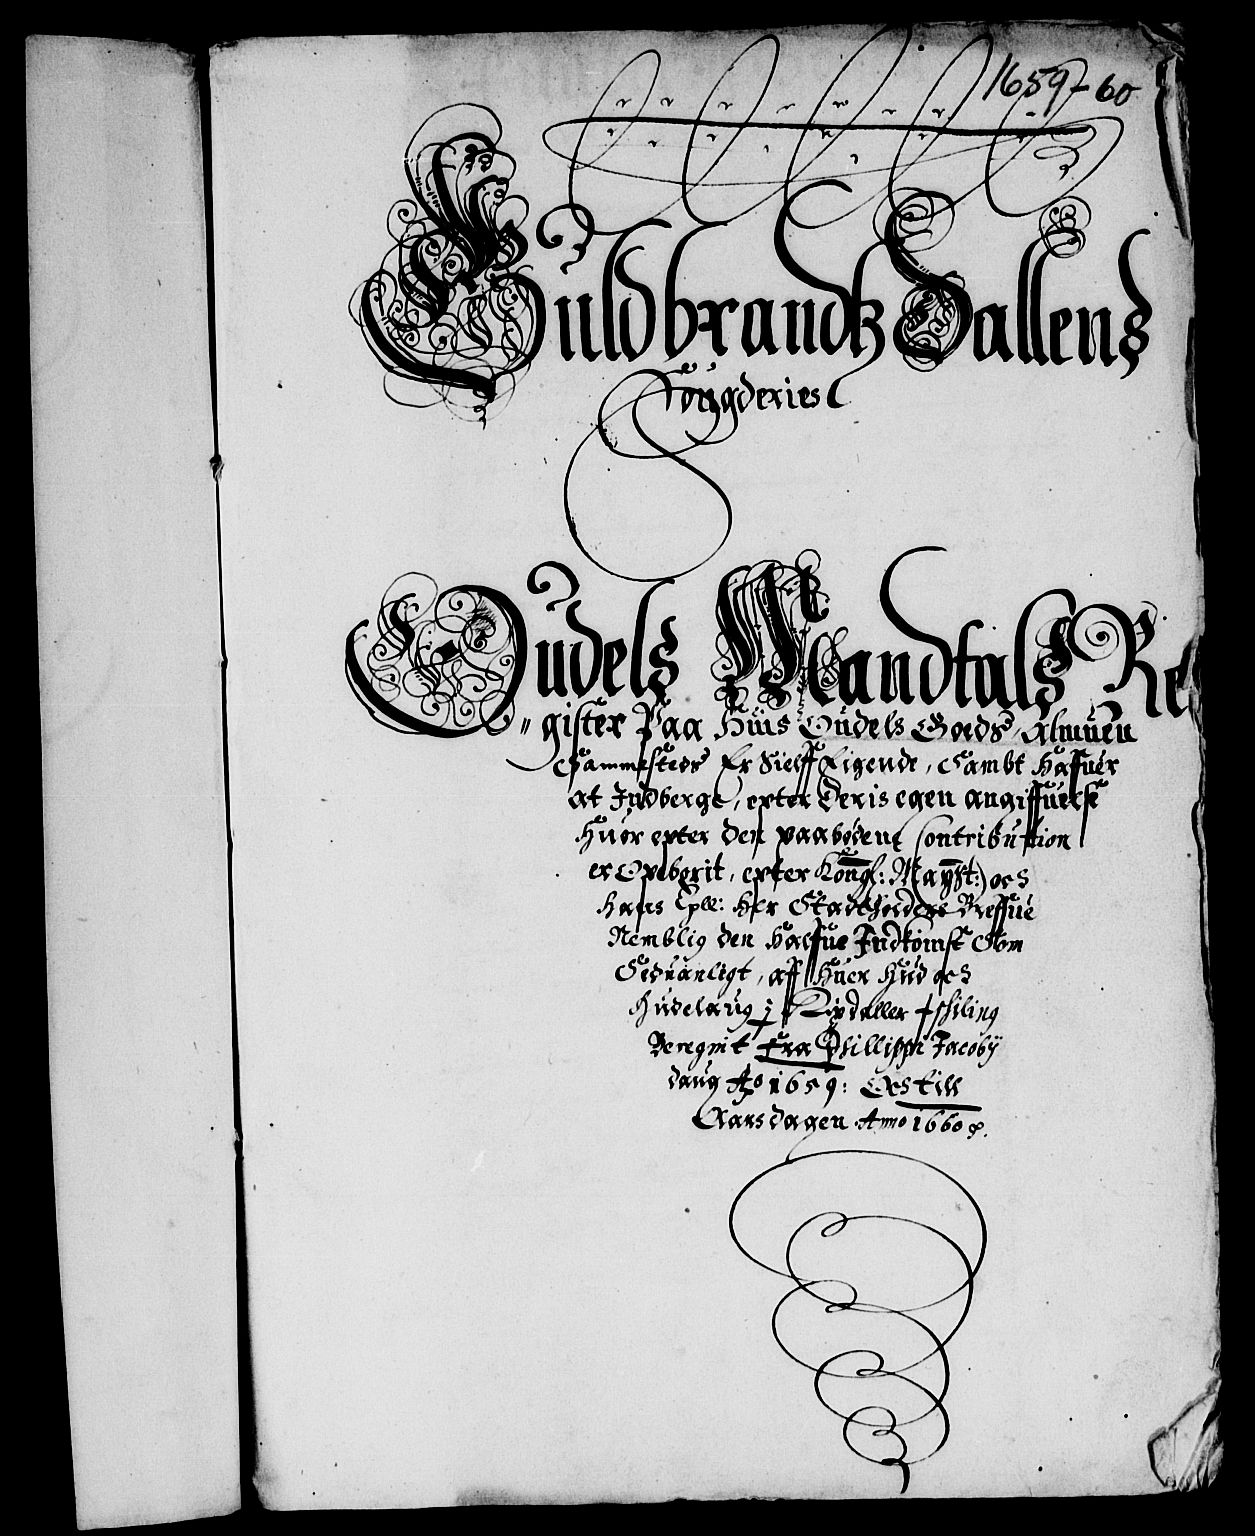 1659-60
Guldbrandtz Dallens
Fougderies
Oudels Mandtals Re
gister Paa Huis Oudels Goeds, Almuen
Sammesteds Er Sielff Eigende, Sambt Haffuer
at Indberge, epter deris egen angiffuelse
Huor epter den paabødene Contribution
er Opeberit, epter Kongl: Mayst:) oc
Hans Her Stadtholders Breffue
Nemblig den Halfue Indkomst Som
Seduanligt, aff Huer Hud oc
Hudelaug Rixdaller schiling
Beregnit Fra Phillippi Jacobij
daug Ao 1659: Oc till
Aarsdagen Anno 1660